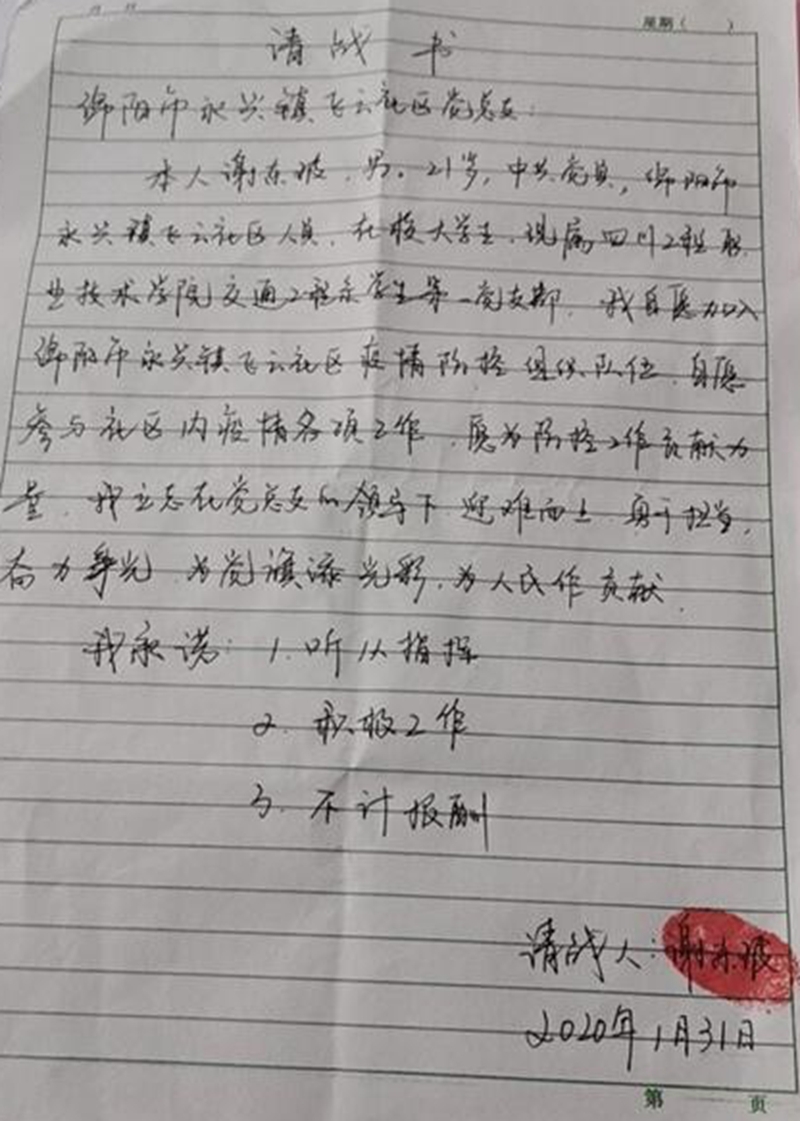 星期（ ）
请战书
绵阳市永兴镇飞云社区党总支：
本人谢东波，男。21岁，中共党员，绵阳市
永兴镇飞云社区人员，在校大学生，现属四川工程职
业技术学院交通工程系学生第一党支部，我自愿加入
绵阳市永兴镇飞云社区疫情防控组织队伍，自愿
参与社区内疫情各项工作，愿为防控工作贡献力
量，我立志在党总支的领导下迎难而上，勇于担当，
奋力争光，为党旗添光彩，为人民作贡献。
我承诺：1.听从指挥
2.积极工作
3.不计报酬
请战人：谢东波
2020年1月31日
第 页